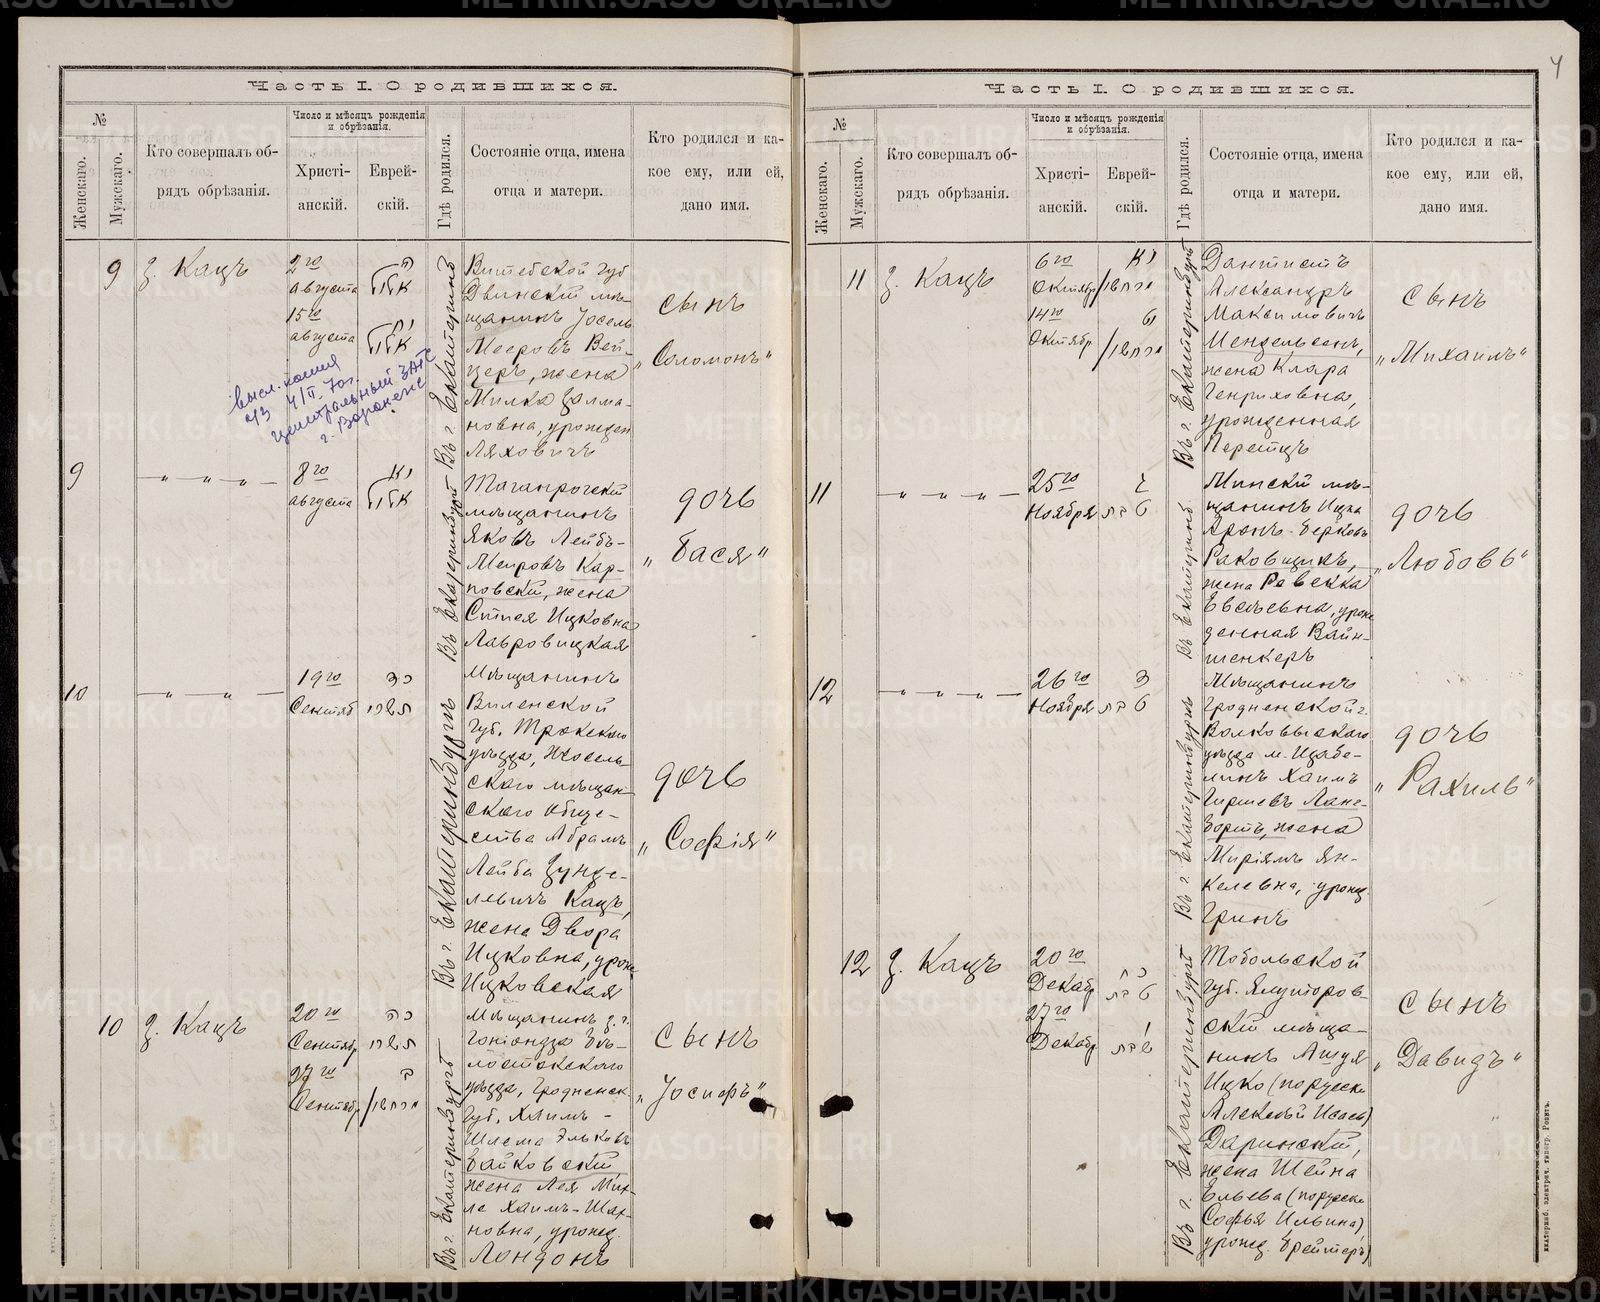 4
Часть I. О родившихся.
№
Женскаго.
Мужскаго.
Кто совершалъ об-
рядъ обрѣзанія.
Число и мѣсяцъ рожденія
и обрѣзанія.
Христі-
анскій.
Еврей-
скій.
Гдѣ родился.
Состояніе отца, имена
отца и матери.
Кто родился и ка-
кое ему, или ей,
дано имя.
9
З. Кацъ
2го
августа
15го
августа
אלול
אלול
Въ г. Екатеринб
Витебской губ
Двинскій мѣ-
щанинъ Іосель
Мееровъ Вей-
церъ, жена
Милка Залма-
новна, урожден
Ляховичъ
сынъ
„Соломонъ"
высл. копия
ЧЗ 4/II. 70г.
центральный ЗАГС
г. Воронеж
9
— „ — „ — „ —
8го
августа
יא
אלול
Въ Екатеринбург
Таганрогскій
мѣщанинъ
Яковъ Лейбъ-
Меировъ Кар-
повскій, жена
Ситея Ицковна
Лавровицкая
дочь
„Бася"
10
— „ — „ —
19го
Сентяб
כד
תשרי
Въ г. Екатеринбургъ
Мѣщанинъ
Виленской
губ. Трокскаго
уѣзда, Жосель-
скаго мѣщан-
скаго обще-
ства Абрамъ
Лейба Зунде-
левичъ Кацъ,
жена Двора
Ицковна, урож
Ицковская
дочь
„Софія"
10
З. Кацъ
20го
Сентябр
27го
Сентябр
כה
תשרי
ב
מרחשון
Въ г. Екатеринбургъ
Мѣщанинъ з. г.
Гоніондза Бѣ-
лостокскаго
уѣзда, Гродненск
губ. Хаимъ-
Шлема Эльковъ
Байковскій,
жена Лея Мих-
ле Хаимъ-Шах-
новна, урожд.
Лондонъ
сынъ
„Іосифъ"
Часть I. О родившихся.
№
Женскаго.
Мужскаго.
Кто совершалъ об-
рядъ обрѣзанія.
Число и мѣсяцъ рожденія
и обрѣзанія.
Христі-
анскій.
Еврей-
скій.
Гдѣ родился.
Состояніе отца, имена
отца и матери.
Кто родился и ка-
кое ему, или ей,
дано имя.
11
З. Кацъ
6го
Октябр
14го
Октябр
יא
מרחשון
מרחשון
Въ г. Екатеринбургъ
Дантистъ
Александръ
Максимовичъ
Мендельсонъ,
жена Клара
Генриховна,
урожденная
Перетцъ
сынъ
„Михаилъ"
11
— „ — „ — „ —
25го
Ноября
טבת
Въ Екатеринб
Минскій мѣ-
щанинъ Ицка
Аронъ-Берковъ
Раковщикъ,
жена Ревекка
Евсѣевна, урож
денная Вайн-
шенкеръ
дочь
„Любовь"
12
— „ — „ — „ —
26го
Ноября
ד
טבת
Въ г. Екатеринбургъ
Мѣщанинъ
Гродненской г.
Волковыскаго
уѣзда м. Изабе-
линъ Хаимъ
Гиршевъ Ланс-
бортъ, жена
Миріямъ Ян-
келевна, урожд.
Гринъ
дочь
„Рахиль"
12
З. Кацъ
20го
Декабр
27го
Декабр
כח
טבת
Въ г. Екатеринбургъ
Тобольской
губ. Ялуторов-
скій мѣща-
нинъ Алщуя
Ицко (порусски
Алексѣй Исаевъ)
Даринскій,
жена Шейна
Ельева (порусски
Софья Ильина)
урожд. Бреймеръ)
сынъ
„Давидъ"
екатеринб. электрич. типогр. Розвгъ.
METRIKI.GASO-URAL.RU